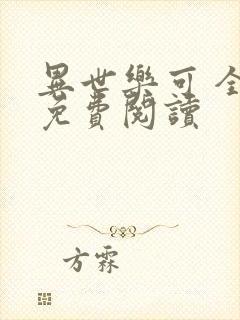 異世樂可 全
免費閱讀
方霖